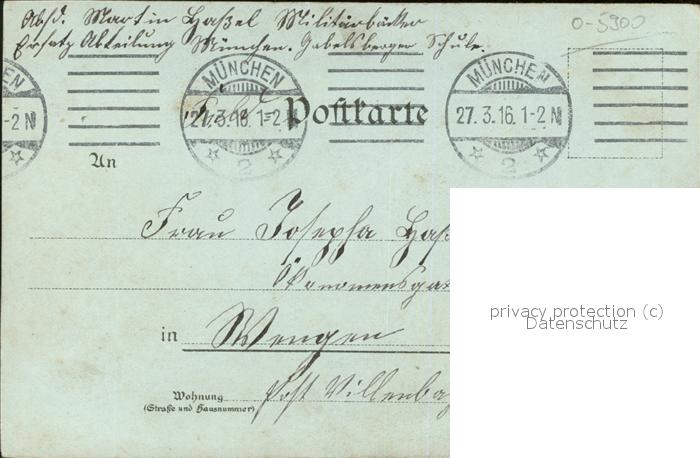 Absd. Martin Haßel Militärbäcker
Ersatz Abteilung München. Gabelsberger Schule.
0-5900
MÜNCHEN
27.3.16. 1-2 N
2
MÜNCHEN
27.3.16. 1-2 N
2
-2 N
Postkarte
An
Frau Josepha Haß
Ökonomensgat
in Wengen
Wohnung
(Straße und Hausnummer)
Post Villenba
privacy protection (c)
Datenschutz